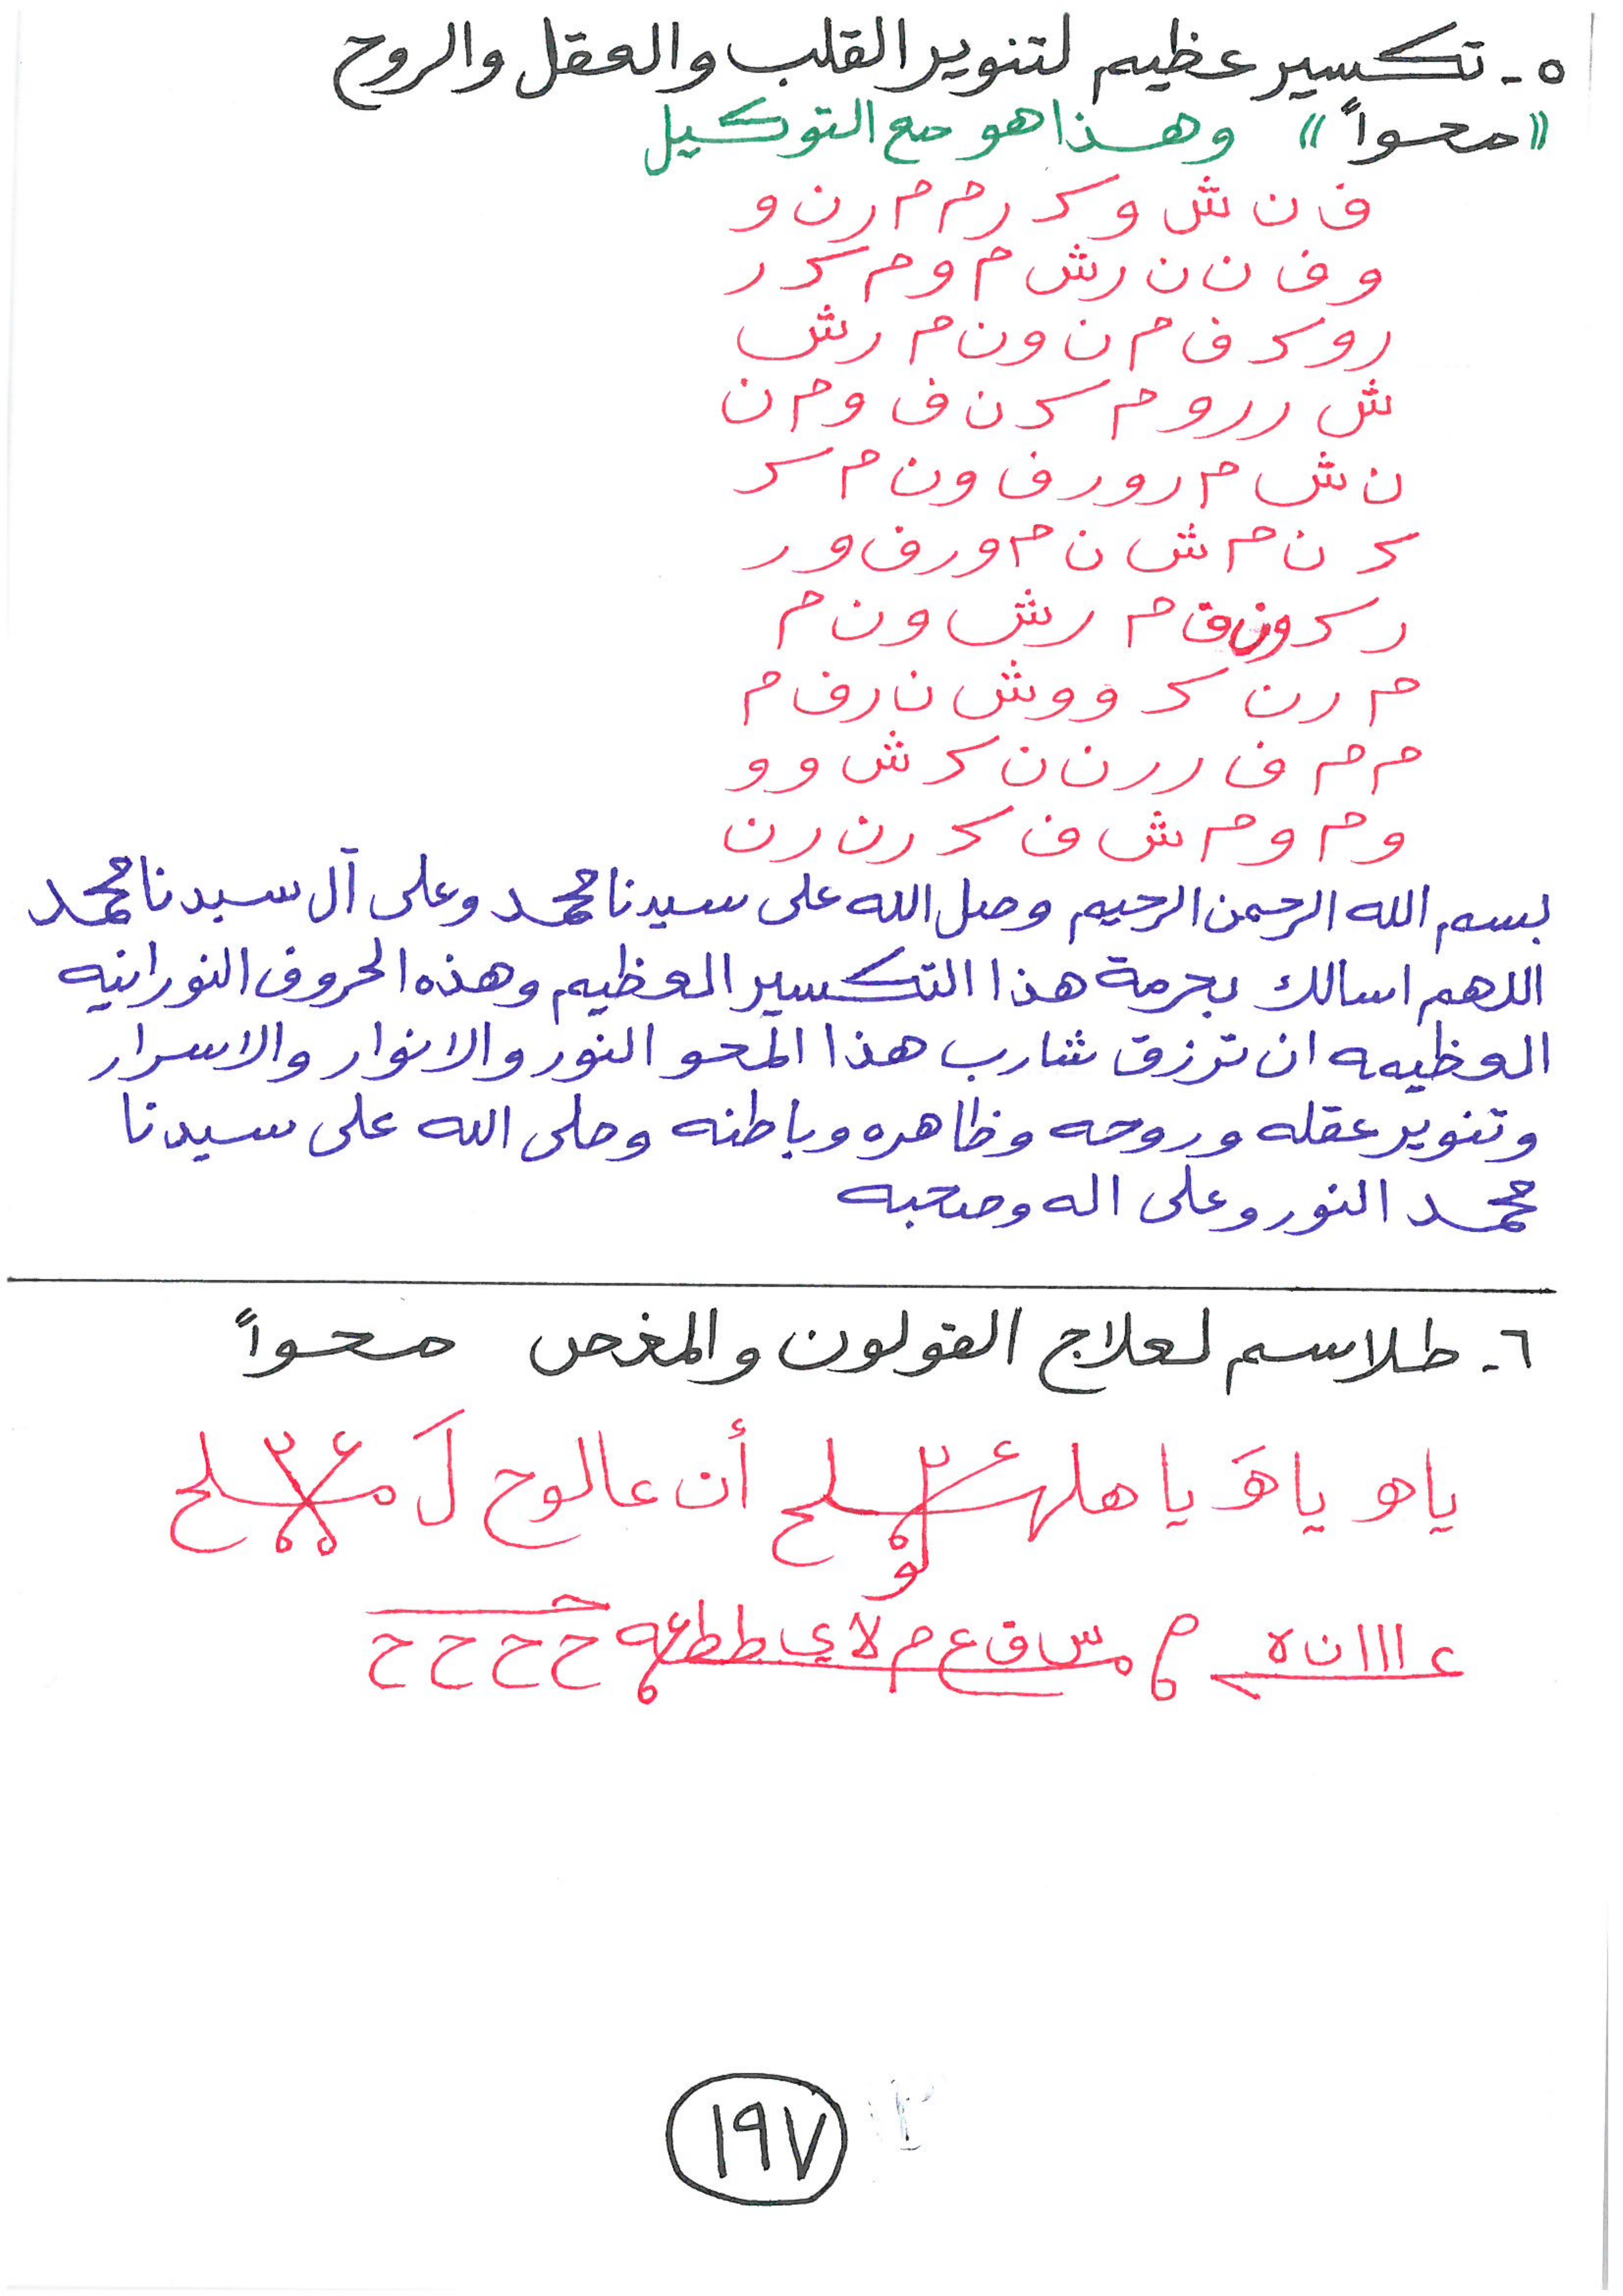 ٥- تكسير عظيم لتنوير القلب والعقل والروح
"محواً" وهذا هو مع التوكيل
ف ن ش و ك ر م م ر ن و
و ف ن ن ر ش م و م ك ر
ر و ك ف م ن و ن م ر ش
ش ر ر و م ك ن ف و م ن
ن ش م ر و ر ف و ن م ك
ك ن م ش ن م و ر ف و ر
ر ك و ن ف م ر ش و ن م
م ر ن ك و و ش ن ر ف م
م م ف ر ر ن ن ك ش و و
و م و م ش ف ك ر ن ر ن
بسم الله الرحمن الرحيم وصل الله على سيدنا محمد وعلى آل سيدنا محمد
اللهم اسالك بحرمة هذا التكسير العظيم وهذه الحروف النورانيه
العظيمه ان ترزق شارب هذا المحو النور والانوار والاسرار
وتنوير عقله وروحه وظاهره وباطنه وصلى الله على سيدنا
محمد النور وعلى اله وصحبه
٦- طلاسم لعلاج القولون والمغص محواً
ياهو ياهَ يا أن عالوح لَ
ع ااا ن ه م س ق ع م لا ي ط ط ح ح ح ح
١٩٧